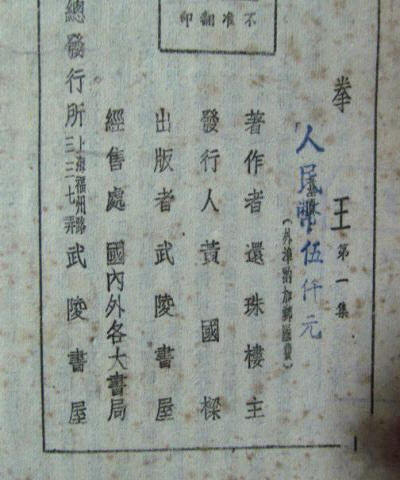 不准翻印
拳王 第一集
人民幣伍仟元
（外埠酌加郵匯費）
著作者 還珠樓主
發行人 黃國樑
出版者 武陵書屋
經售處 國內外各大書局
總發行所 上海福州路三三七弄 武陵書屋